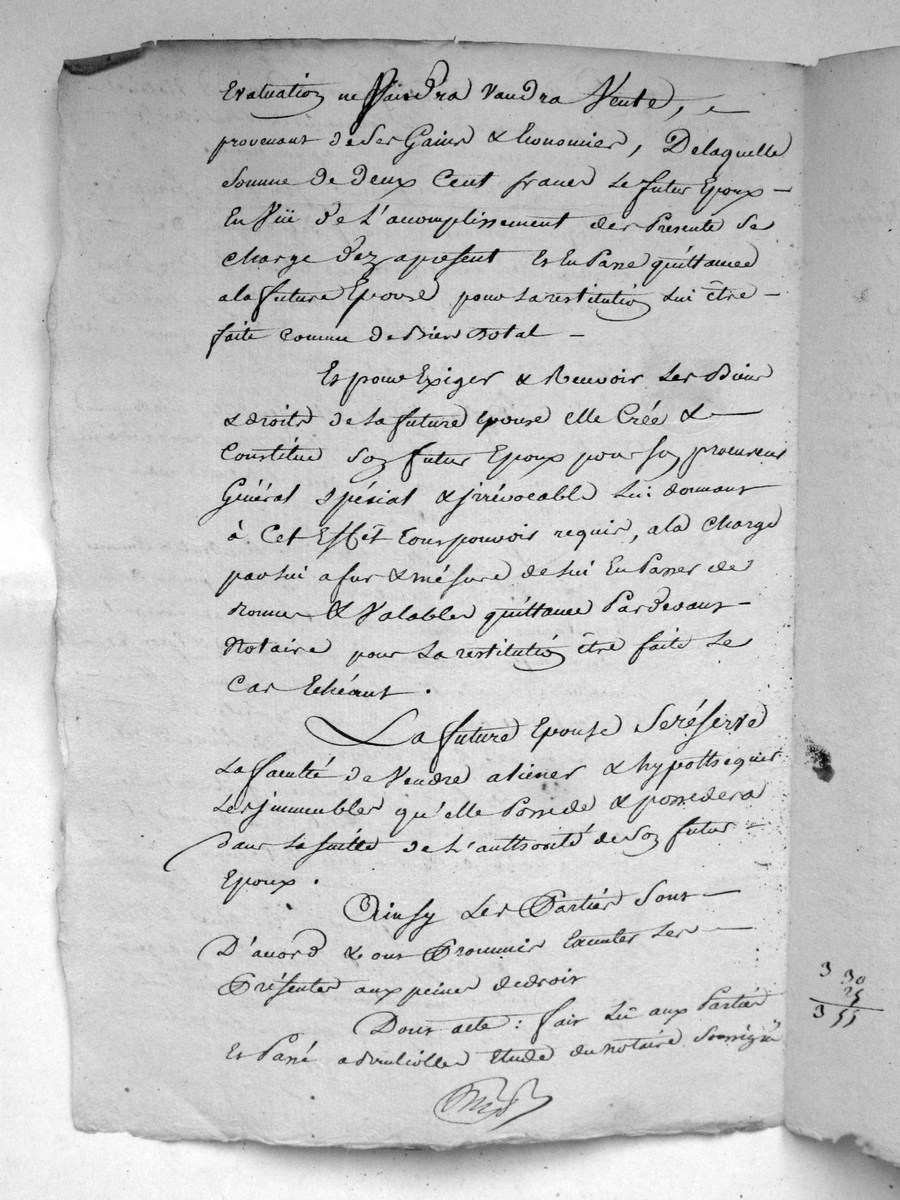 Evaluation ne vaudra Vente,
provenant de Ses Gains & Economies, De laquelle
Somme de deux Cent francs Le futur Epoux -
En Vüe de L'accomplissement des Presente Se
Charge dez apresent Et En Passe quittance
a la future Epouse pour La restitution Lui être -
faite comme de Bien Dotal -
Et pour Exiger & Recevoir Les Biens
& droits de La future Epouse elle Crée & -
Constitue Son futur Epoux pour Son procureur
Général Spésial & jrrévocable Lui donnant
à Cet Effèt tous pouvoir requis, a la Charge
par Lui a fur & mésure de Lui En Passer de
Bonnes & Valables quittance Pardevant -
Notaire pour La restitution être faite Le
Cas Echéant.
La future Epouse Se réserve
La faculté de Vendre aliener & hypothequer
Les jmmeubles qu'elle Possede & possedera
dans La suitte de L'authorité de Son futur -
Epoux.
Ainsy Les Parties Sont -
D'acord & ont Prommis Executer Les -
Présentes aux peines de droit
Dont acte : fait Lû aux Parties
Et Passé a Etude du Notaire Soussigné
3 30
25
3 55